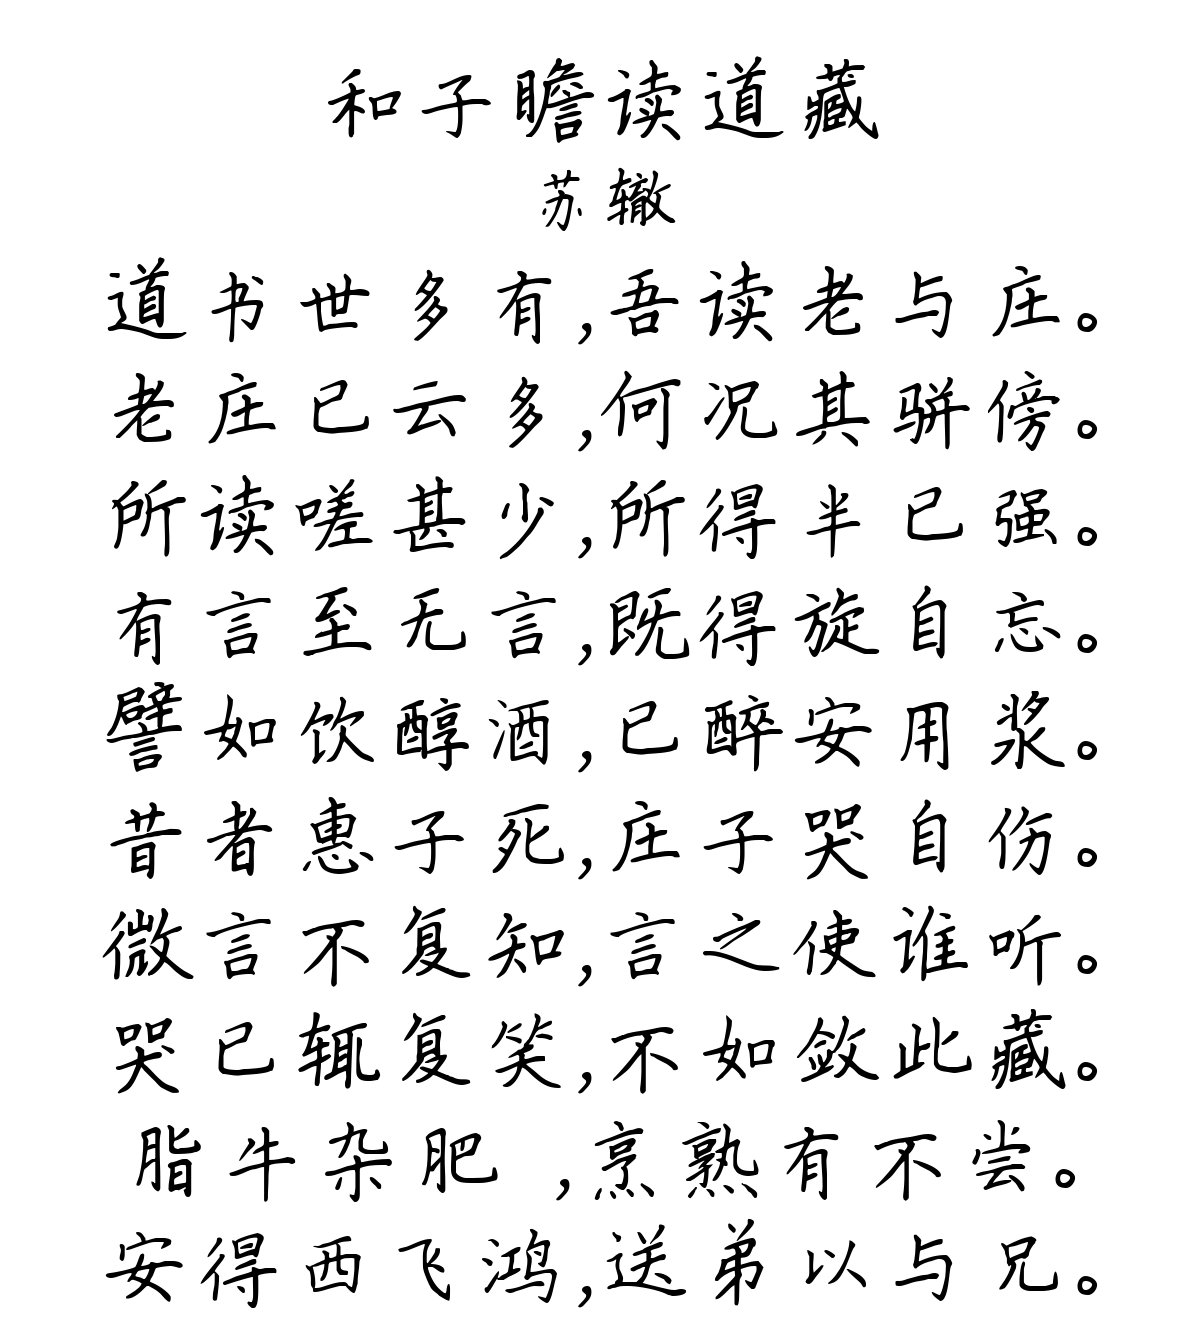 和子瞻读道藏
苏辙
道书世多有,吾读老与庄。
老庄已云多,何况其骈傍。
所读嗟甚少,所得半已强。
有言至无言,既得旋自忘。
譬如饮醇酒,已醉安用浆。
昔者惠子死,庄子哭自伤。
微言不复知,言之使谁听。
哭已辄复笑,不如敛此藏。
脂牛杂肥 ,烹熟有不尝。
安得西飞鸿,送弟以与兄。